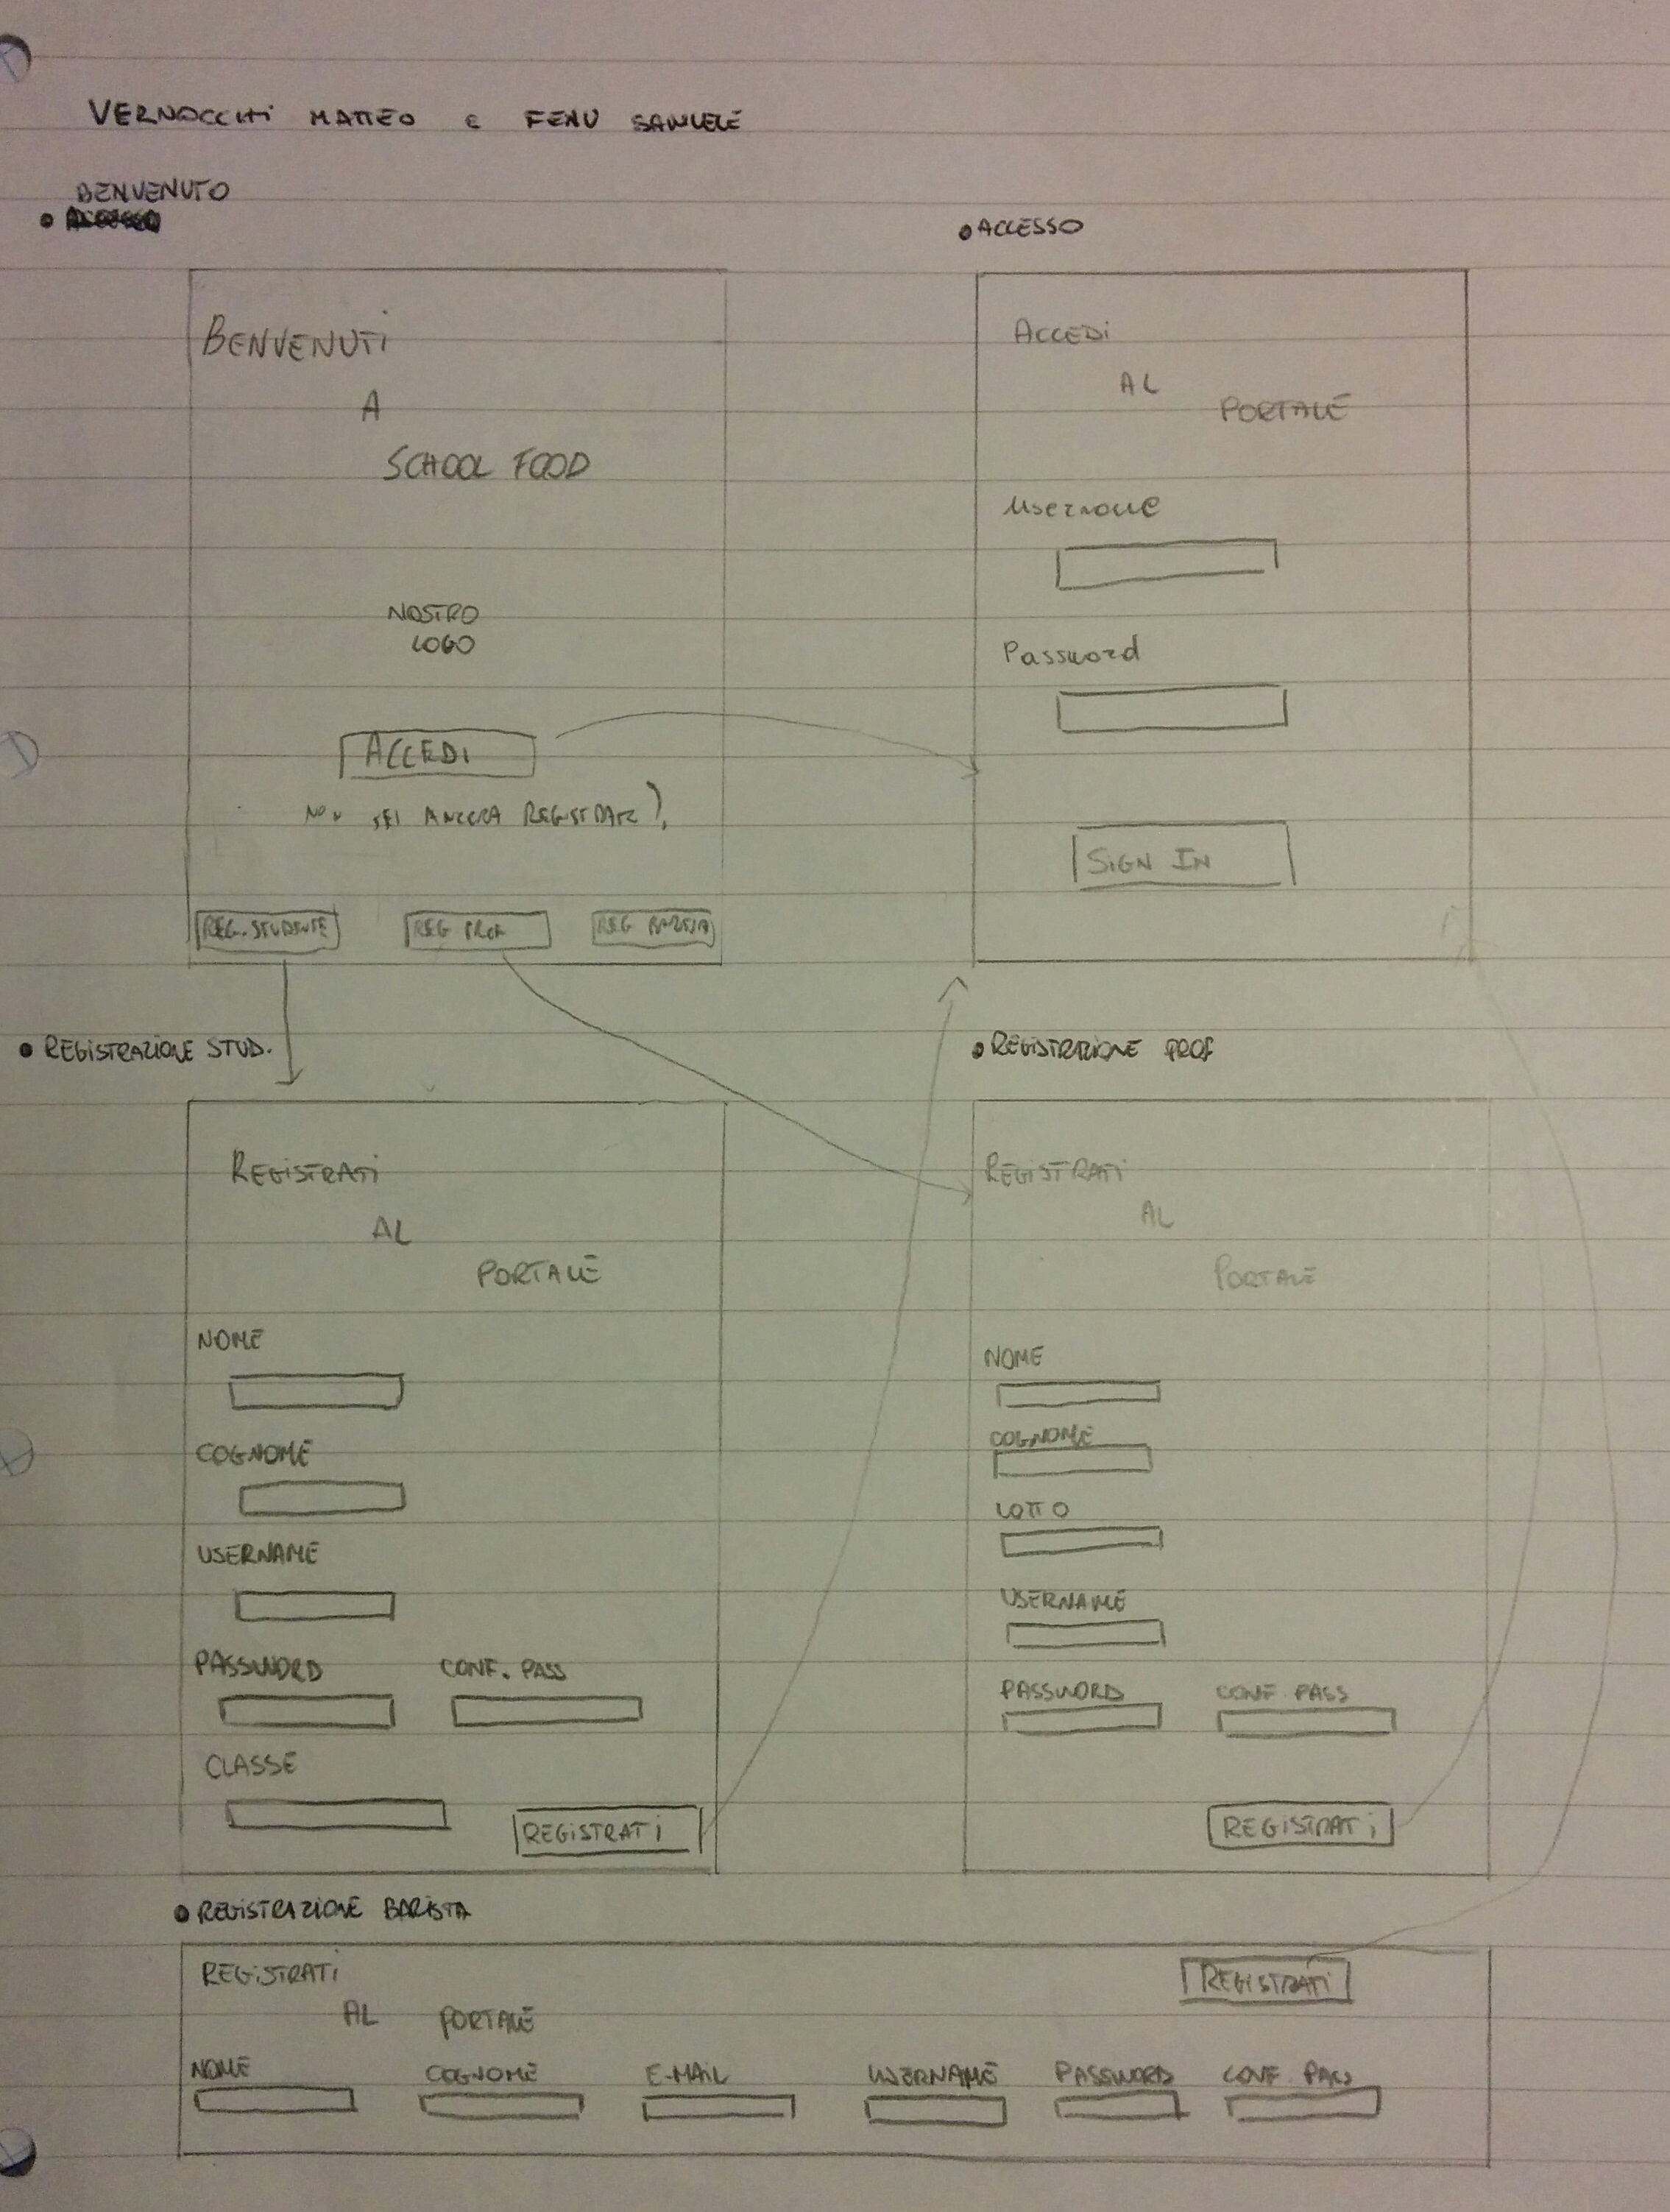 VERNOCCHI MATTEO e FENU SAMUELE
BENVENUTO
ACCESSO
BENVENUTI
A
SCHOOL FOOD
NOSTRO
LOGO
ACCEDI
NON SEI ANCORA REGISTRATO?
REG. STUDENTE REG PROF REG BARISTA
ACCEDI
AL
PORTALE
Username
Password
SIGN IN
REGISTRAZIONE STUD.
REGISTRATI
AL
PORTALE
NOME
COGNOME
USERNAME
PASSWORD CONF. PASS
CLASSE
REGISTRATI
REGISTRAZIONE PROF
REGISTRATI
AL
PORTALE
NOME
COGNOME
LOTTO
USERNAME
PASSWORD CONF. PASS
REGISTRATI
REGISTRAZIONE BARISTA
REGISTRATI
AL PORTALE
REGISTRATI
NOME COGNOME E-MAIL USERNAME PASSWORD CONF. PASS